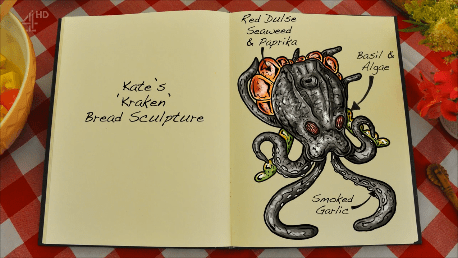 4HD
Kate's
'Kraken'
Bread Sculpture
Red Dulse
Seaweed
& Paprika
Basil &
Algae
Smoked
Garlic